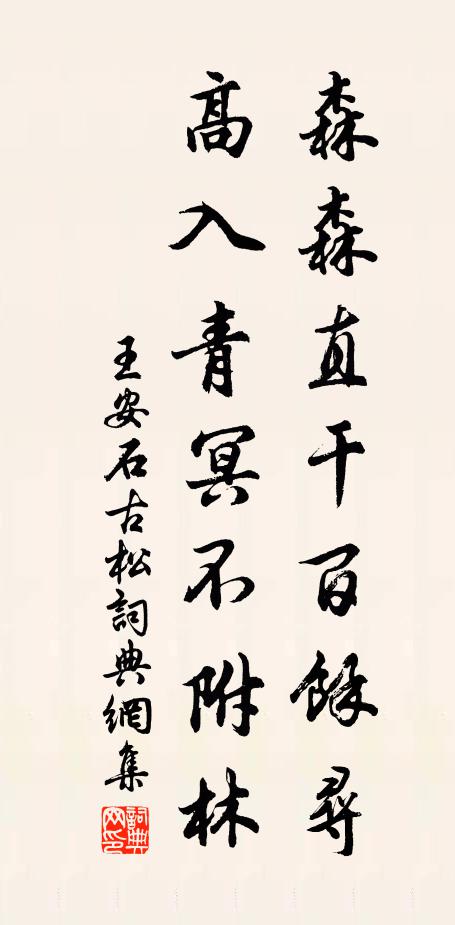 森森直干百餘尋
高入青冥不附林
王安石古松詞典網集
詞典网印